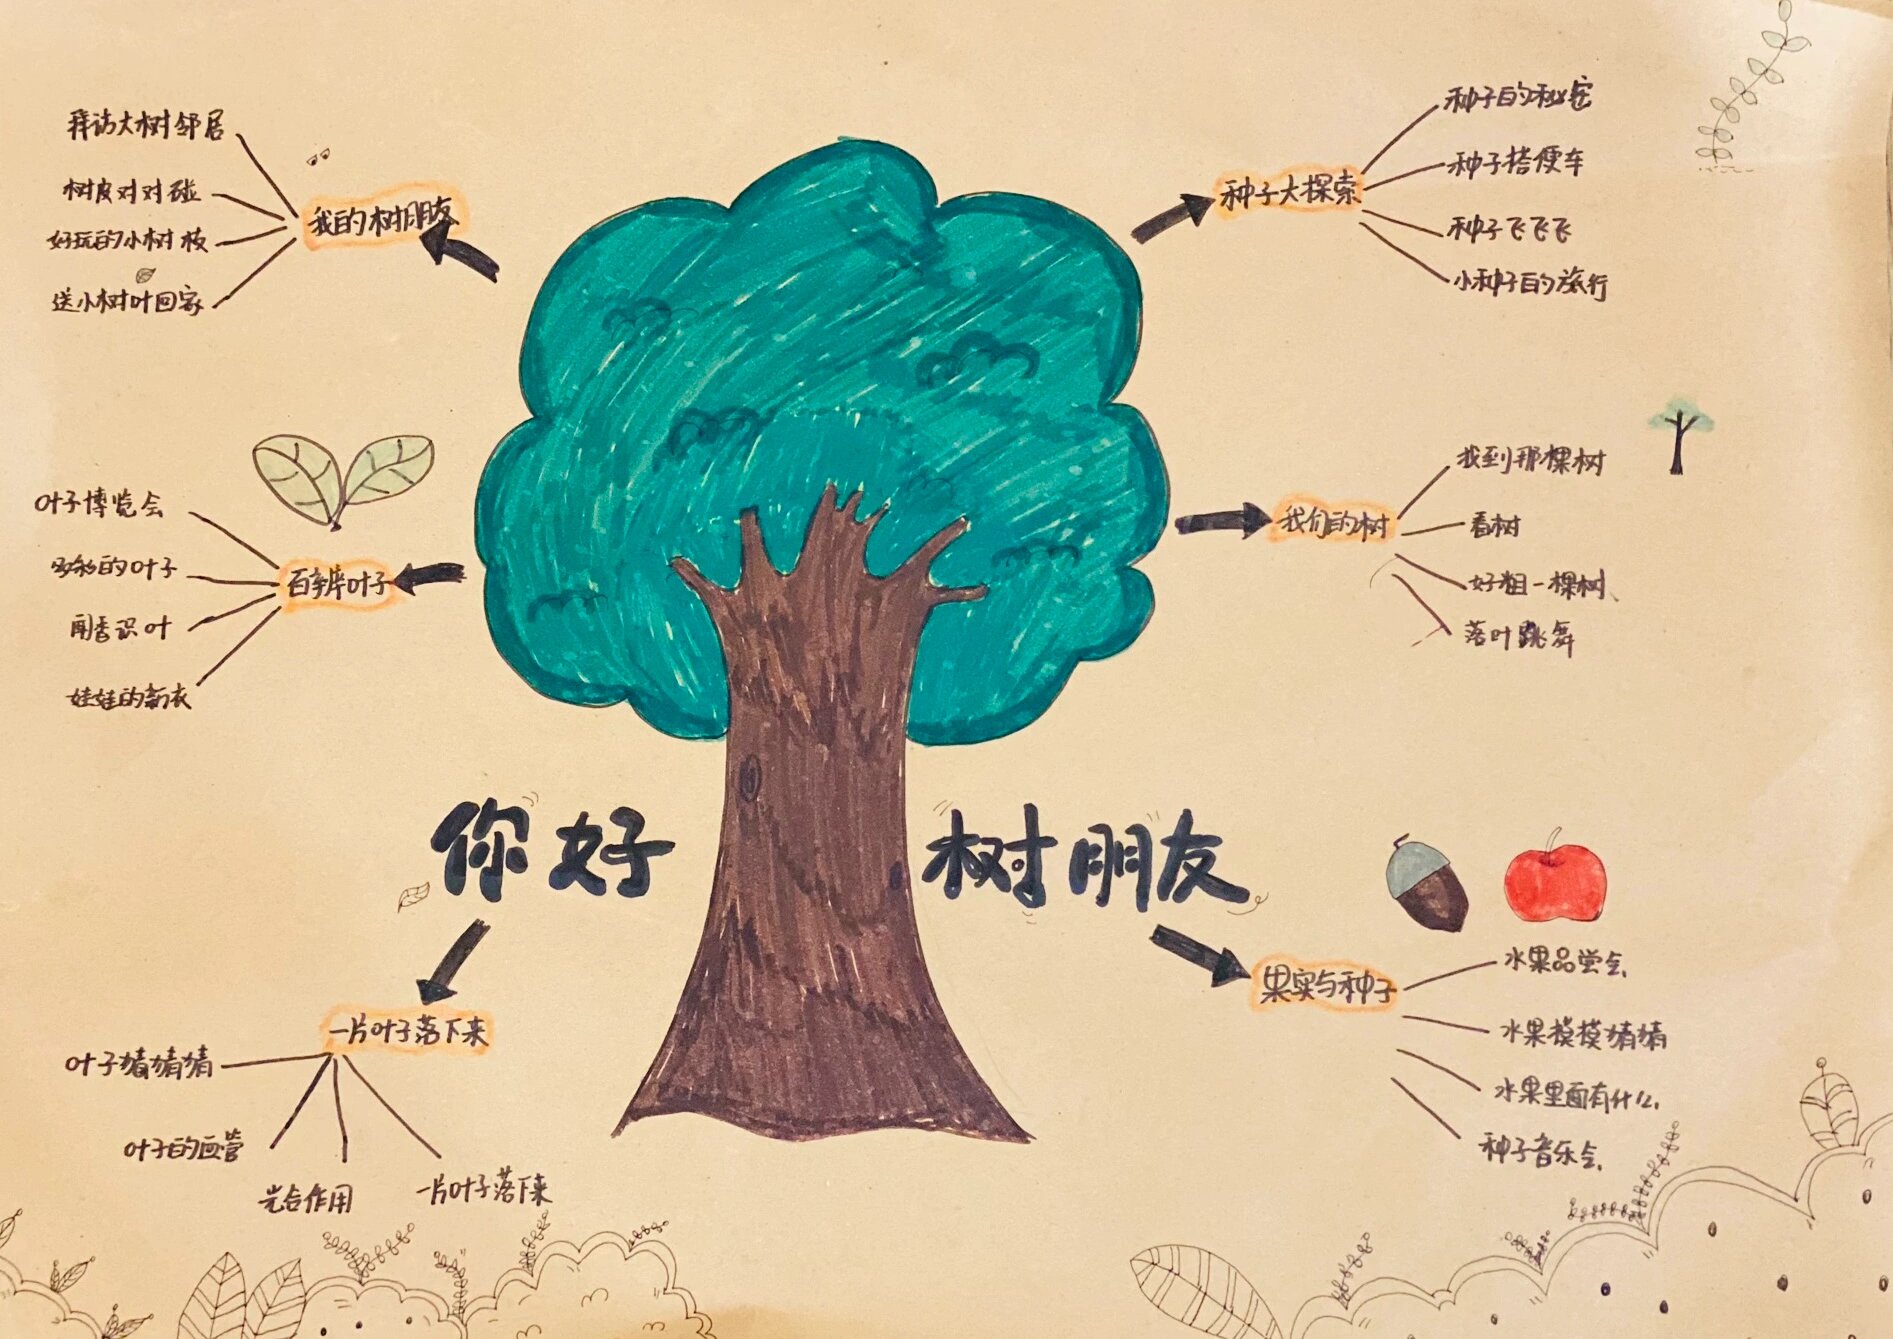 拜访大树邻居
树皮对对碰
好玩的小树枝
送小树叶回家
我的树朋友
种子大探索
种子的秘密
种子搭便车
种子飞飞飞
小种子的旅行
叶子博览会
多彩的叶子
闻香识叶
娃娃的新衣
百辨叶子
我们的树
找到那棵树
看树
好粗一棵树
落叶跳舞
你好 树朋友
一片叶子落下来
叶子猜猜猜
叶子的血管
光合作用
一片叶子落下来
果实与种子
水果品尝会
水果摸摸猜猜
水果里面有什么
种子音乐会